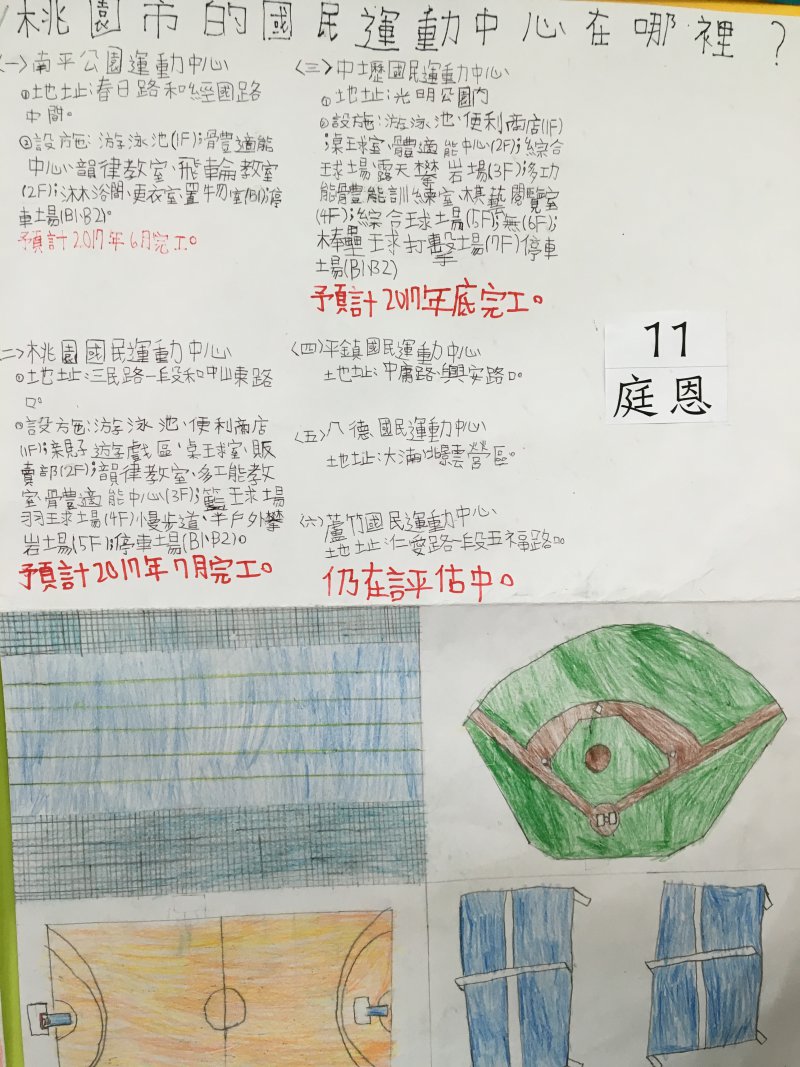 桃園市的國民運動中心在哪裡?
(一)南平公園運動中心
①地址:春日路和經國路
中間。
②設施:游泳池(1F);體適能
中心、韻律教室、飛輪教室
(2F);沐浴間、更衣室置物室(B1);停
車場(B1、B2)。
預計2017年6月完工。
(二)桃園國民運動中心
①地址:三民路一段和中山東路
口。
②設施:游泳池、便利商店
(1F);親子遊戲區、桌球室、販
賣部(2F);韻律教室、多工能教
室、體適能中心(3F);籃球場
羽球場(4F)慢步道、半戶外攀
岩場(5F);停車場(B1、B2)。
預計2017年7月完工。
(三)中壢國民運動中心
①地址:光明公園內
②設施:游泳池、便利商店(1F)
;桌球室、體適能中心(2F);綜合
球場、露天攀岩場(3F);多功
能體能訓練室、棋藝閱覽室
(4F);綜合球場(5F);無(6F);
棒壘球打擊場(7F)停車
場(B1、B2)
預計2017年底完工。
(四)平鎮國民運動中心
地址:中庸路、興安路口。
(五)八德國民運動中心
地址:大湳北景雲營區。
(六)蘆竹國民運動中心
地址:仁愛路一段五福路口。
仍在評估中。
11
庭恩